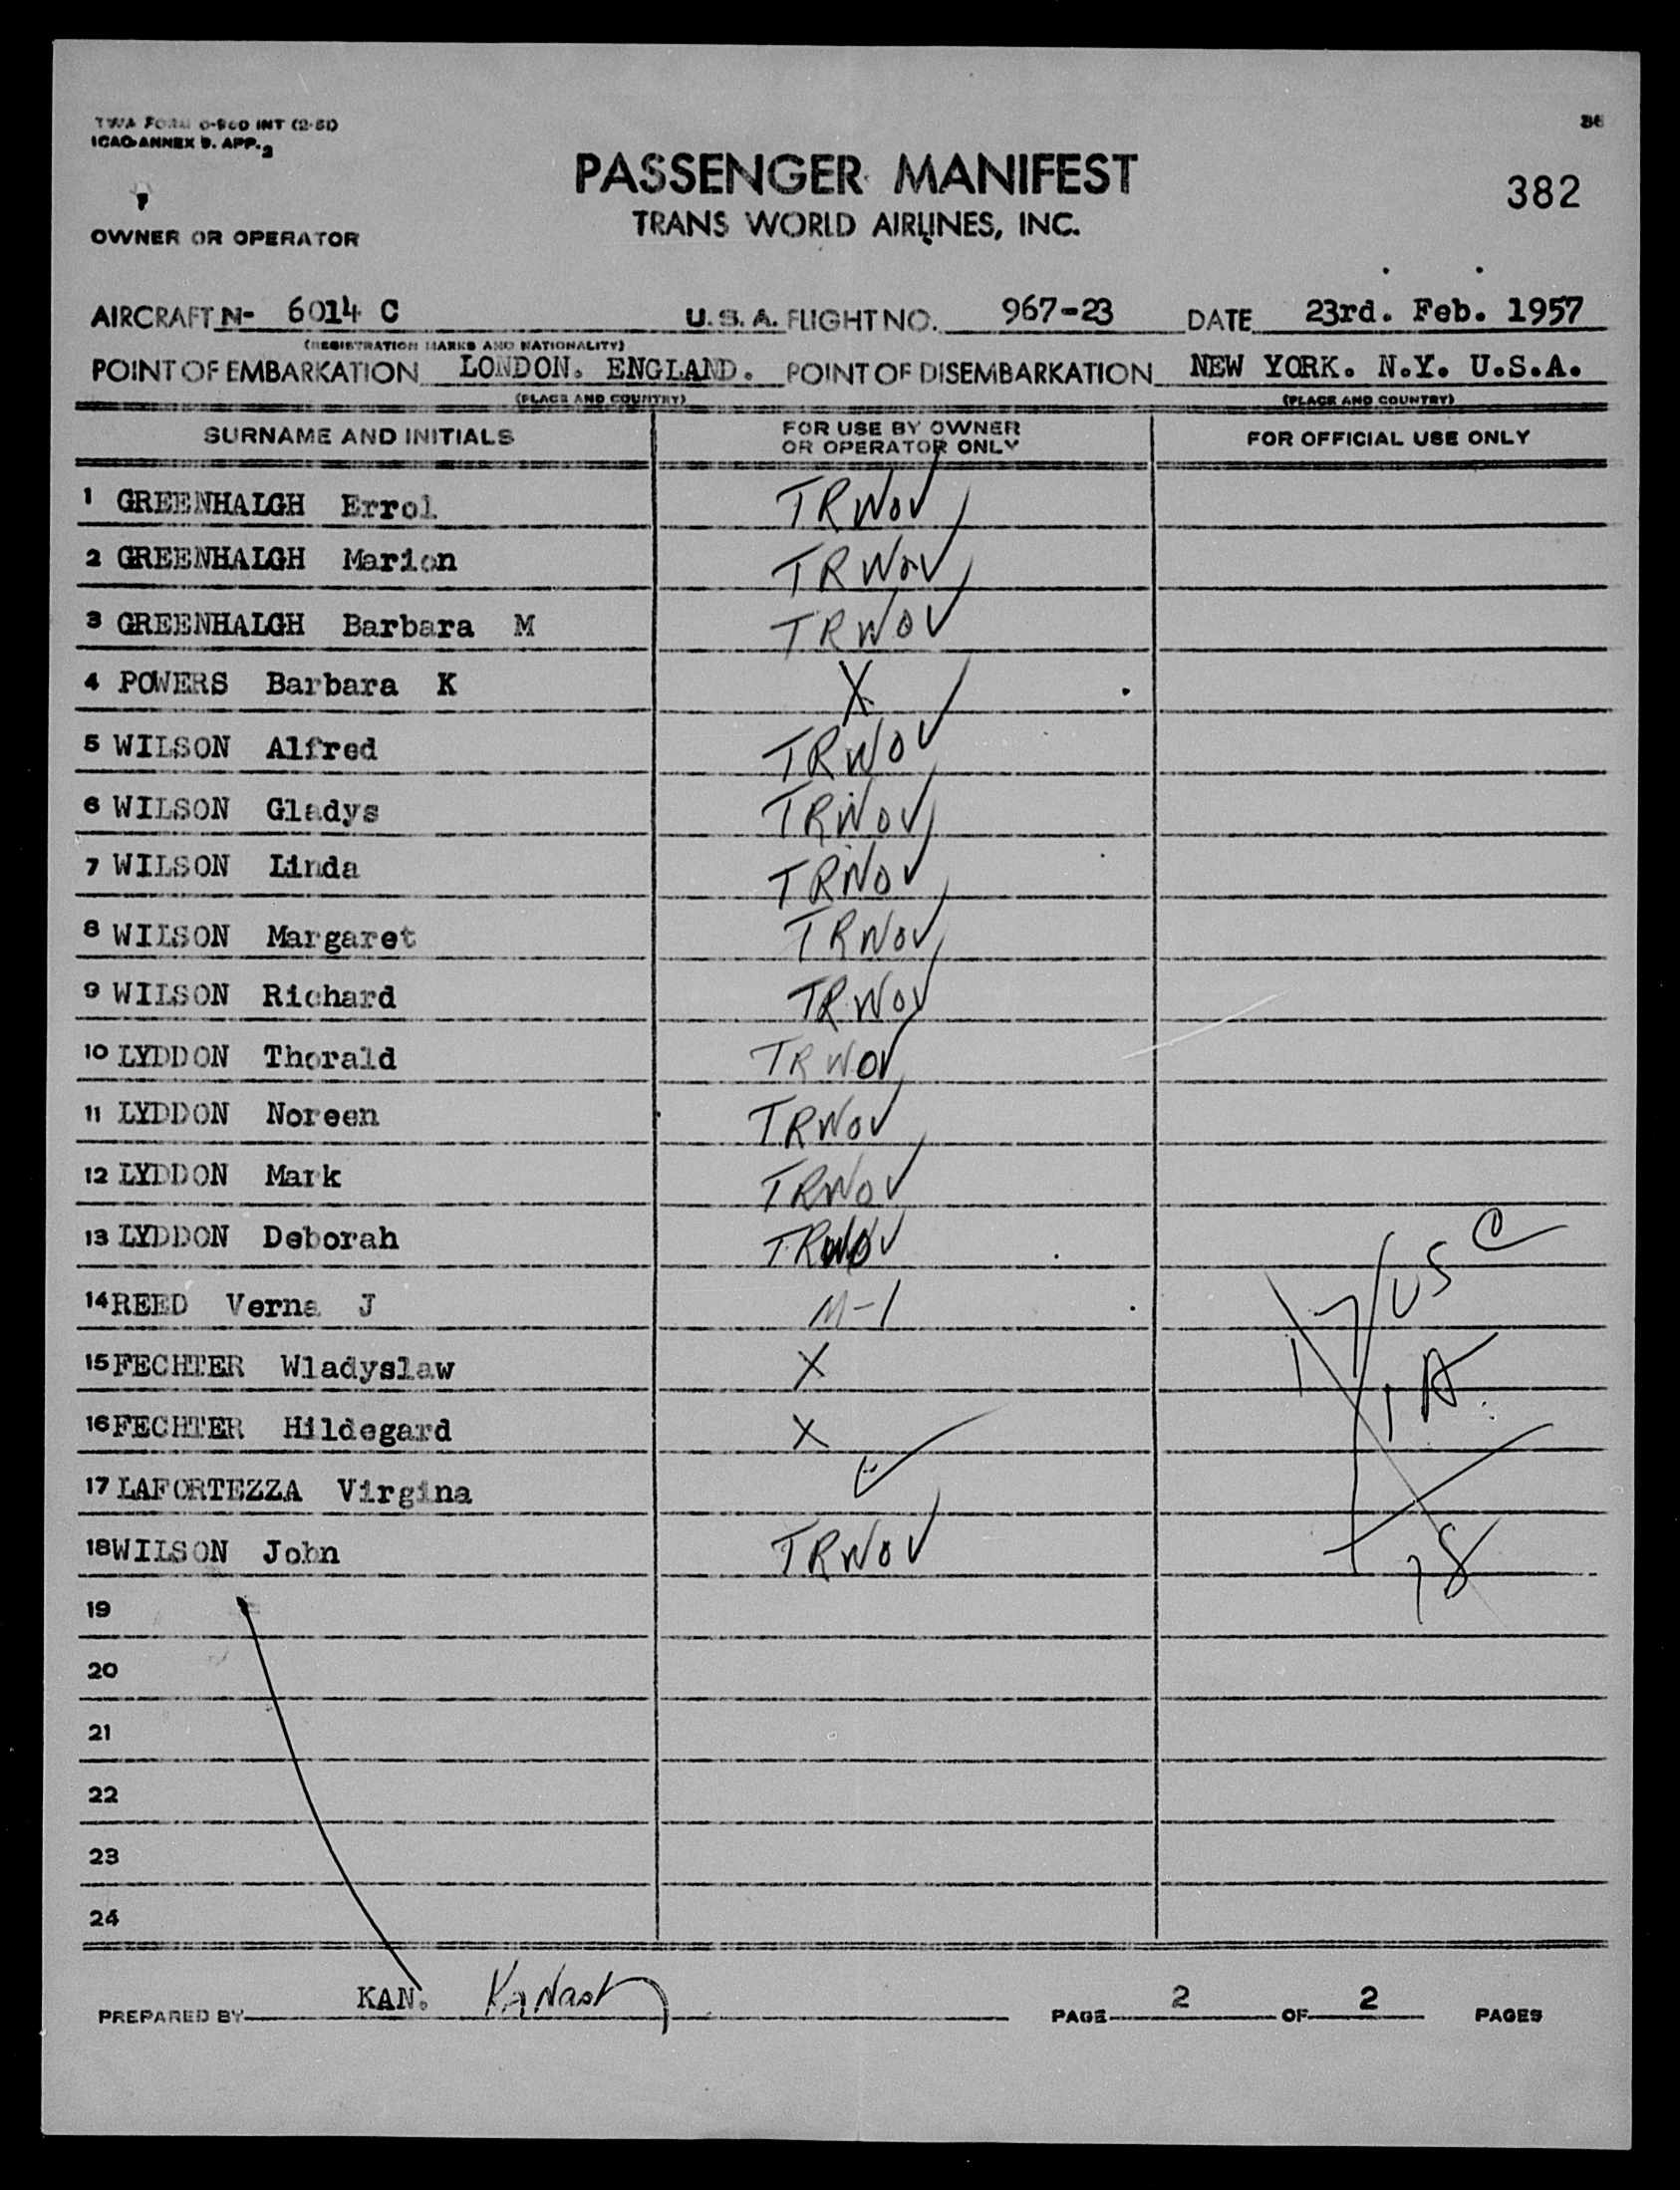 TWA FORM 0-960 INT (2-51)
ICAO-ANNEX 9. APP. 2
382
PASSENGER MANIFEST
TRANS WORLD AIRLINES, INC.
OWNER OR OPERATOR
AIRCRAFT N- 6014 C U. S. A. FLIGHT NO. 967-23 DATE 23rd. Feb. 1957
(REGISTRATION MARKS AND NATIONALITY)
POINT OF EMBARKATION LONDON. ENGLAND. POINT OF DISEMBARKATION NEW YORK. N.Y. U.S.A.
(PLACE AND COUNTRY) (PLACE AND COUNTRY)
SURNAME AND INITIALS FOR USE BY OWNER OR OPERATOR ONLY FOR OFFICIAL USE ONLY
1 GREENHALGH Errol TRWOV
2 GREENHALGH Marion TRWOV
3 GREENHALGH Barbara M TRWOV
4 POWERS Barbara K X
5 WILSON Alfred TRWOV
6 WILSON Gladys TRWOV
7 WILSON Linda TRWOV
8 WILSON Margaret TRWOV
9 WILSON Richard TRWOV
10 LYDDON Thorald TRWOV
11 LYDDON Noreen TRWOV
12 LYDDON Mark TRWOV
13 LYDDON Deborah TRWOV
USC
14 REED Verna J M-1
15 FECHTER Wladyslaw X
A.
16 FECHTER Hildegard X
17 LAFORTEZZA Virgina
18 WILSON John TRWOV
18
19
20
21
22
23
24
PREPARED BY KAN. PAGE 2 OF 2 PAGES